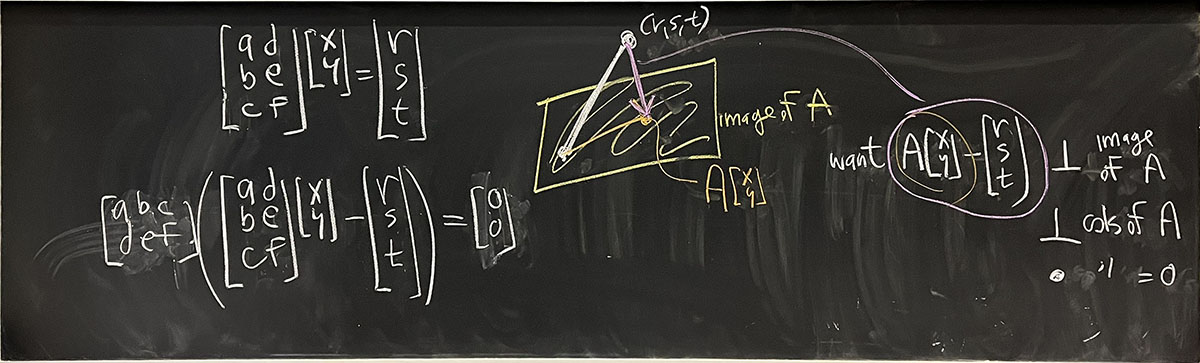 [a d
b e
c f] [x
y] = [r
s
t]
[a b c
d e f] ([a d
b e
c f] [x
y] - [r
s
t]) = [0
0]
(r,s,t)
image of A
A[x
y]
want A[x
y] - [r
s
t] ⊥ image
of A
⊥ cols of A
• " = 0